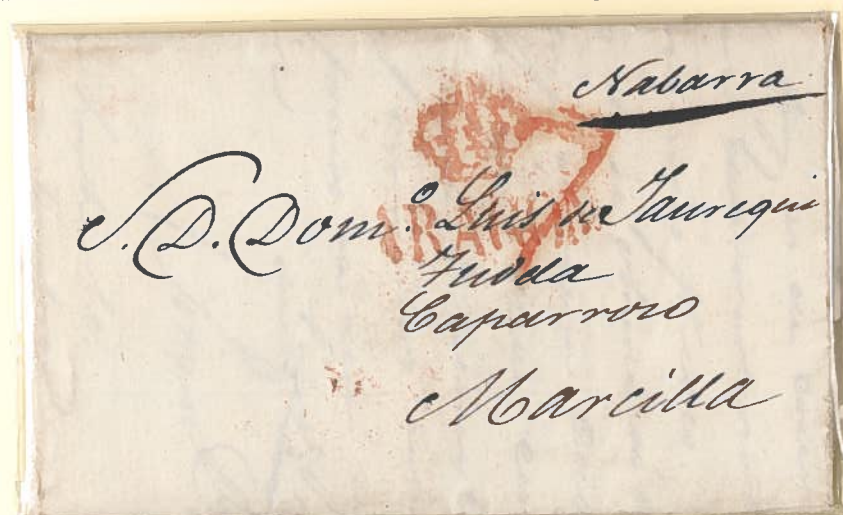 Nabarra
S. D. Dom.º Luis de Jauregui
Tudela
Caparroso
Marcilla